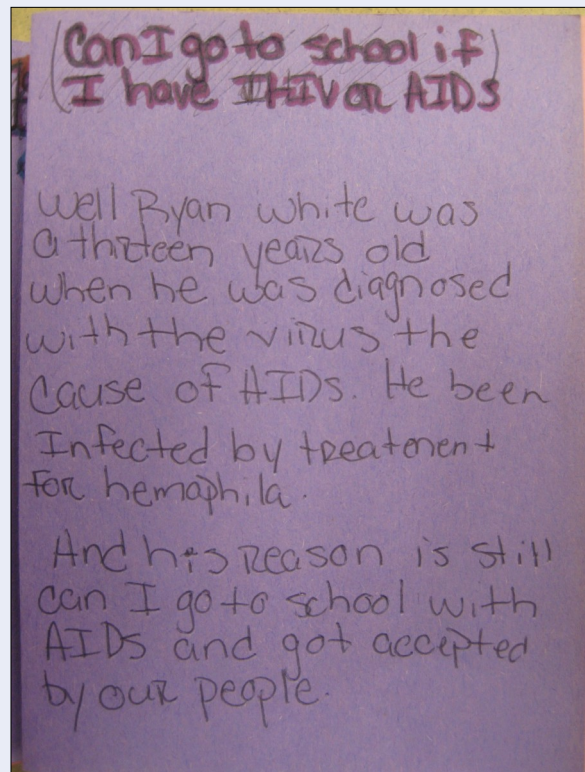 (Can I go to school if)
(I have HIV or AIDS
Well Ryan white was
a thirteen years old
when he was diagnosed
with the virus the
cause of AIDs. He been
Infected by treatement
for hemaphila.
And his reason is still
can I go to school with
AIDs and got accepted
by our people.